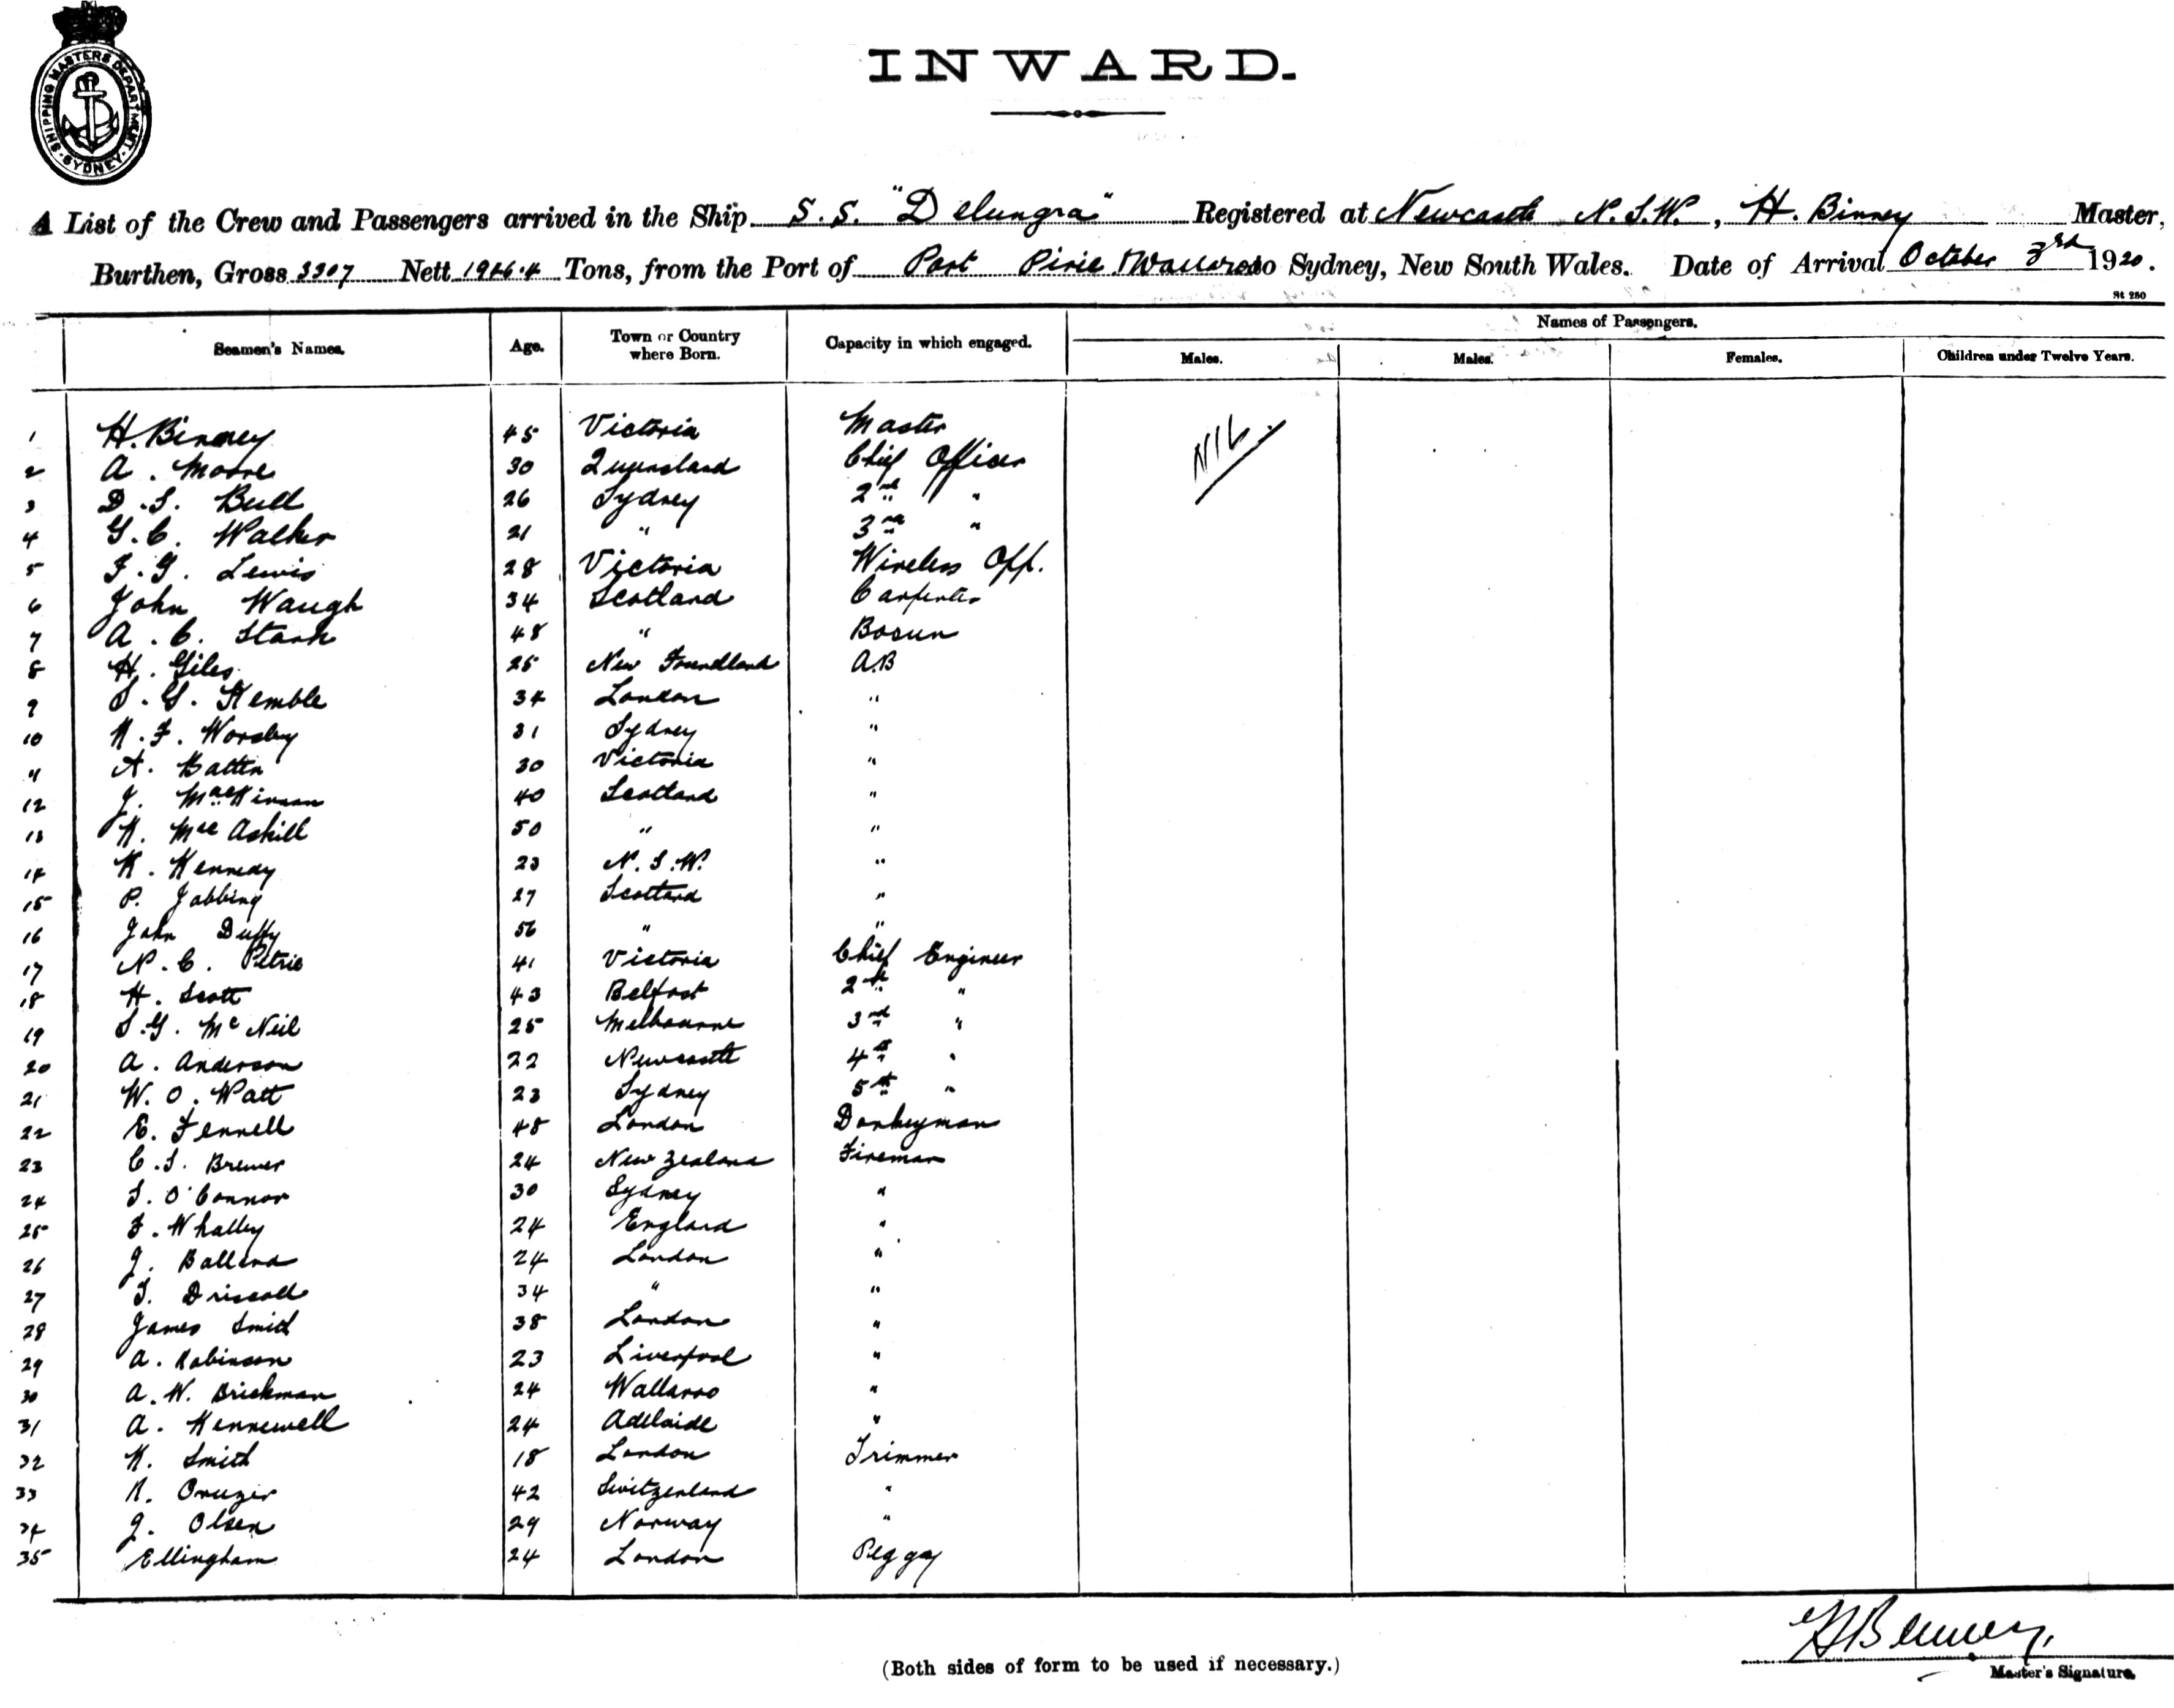 SHIPPING MASTERS DEPARTMENT SYDNEY
INWARD.
A List of the Crew and Passengers arrived in the Ship S.S. "Delungra" Registered at Newcastle N.S.W., H. Binney Master,
Burthen, Gross 3307 Nett 1946.4 Tons, from the Port of Port Pirie & Wallaroo to Sydney, New South Wales. Date of Arrival October 3rd 1920.
St 280
Seamen's Names. Age. Town or Country where Born. Capacity in which engaged. Names of Passengers.
Males. Males. Females. Children under Twelve Years.
NIL
1 H. Binney 45 Victoria Master
2 A. Moore 30 Queensland Chief Officer
3 D.S. Bull 26 Sydney 2nd "
4 G.C. Walker 21 " 3rd "
5 F.G. Lewis 28 Victoria Wireless Off.
6 John Waugh 34 Scotland Carpenter
7 A.C. Stark 48 " Bosun
8 H. Giles 25 New Foundland A.B
9 S.G. Kemble 34 London "
10 R.F. Worsley 31 Sydney "
11 A. Batten 30 Victoria "
12 J. MacKinnon 40 Scotland "
13 K. MacAskill 50 " "
14 K. Kennedy 23 N.S.W. "
15 P. Jabbing 27 Scotland "
16 John Duffy 56 " "
17 N.C. Petrie 41 Victoria Chief Engineer
18 H. Scott 43 Belfast 2nd "
19 S.G. McNeil 25 Melbourne 3rd "
20 A. Anderson 22 Newcastle 4th "
21 W.O. Watt 23 Sydney 5th "
22 E. Fennell 48 London Donkeyman
23 C.S. Brewer 24 New Zealand Fireman
24 S. O'Connor 30 Sydney "
25 F. Whalley 24 England "
26 J. Ballend 24 London "
27 T. Driscoll 34 " "
28 James Smith 38 London "
29 A. Robinson 23 Liverpool "
30 A.W. Brickman 24 Wallaroo "
31 A. Kennewell 24 Adelaide "
32 R. Smith 18 London Trimmer
33 R. 42 Switzerland "
34 J. Olsen 29 Norway "
35 Ellingham 24 London Peggy
H Binney.
Master's Signature.
(Both sides of form to be used if necessary.)